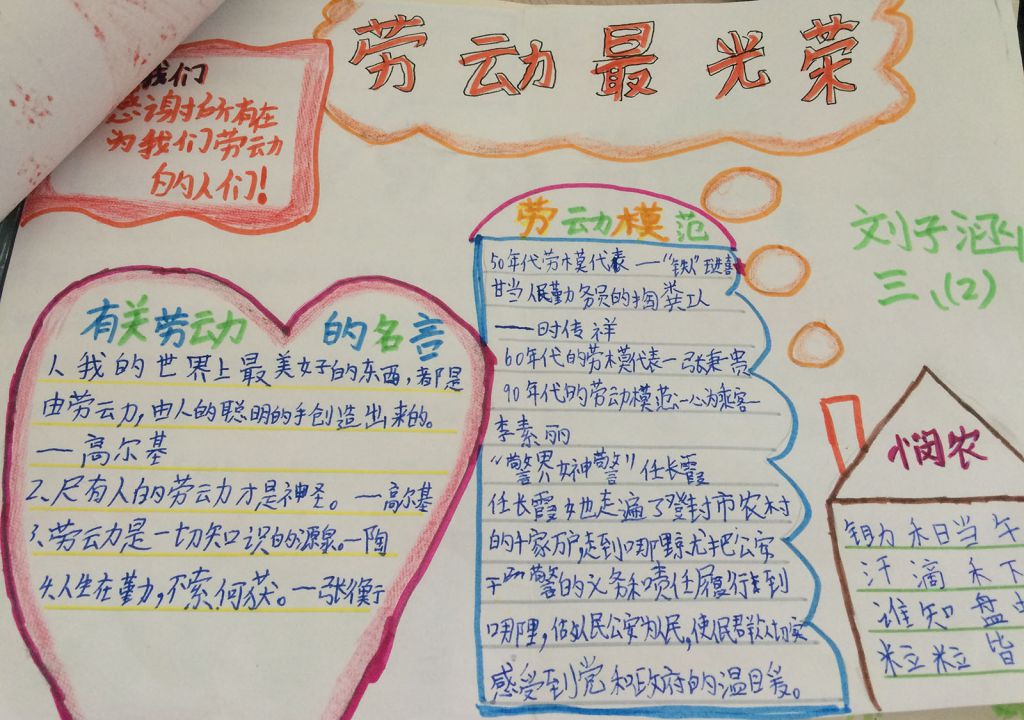 劳动最光荣
我们
感谢所有在
为我们劳动
的人们!
刘子涵
三、(2)
有关劳动的名言
1、我的世界上最美好的东西,都是
由劳动,由人的聪明的手创造出来的。
—高尔基
2、只有人的劳动才是神圣。—高尔基
3、劳动是一切知识的源泉。—陶
4、人生在勤,不索何获。—张衡
劳动模范
50年代劳模代表—"铁人"王进喜
甘当人民勤务员的掏粪工人
——时传祥
60年代的劳模代表—张秉贵
90年代的劳动模范—心为乘客—
李素丽
"警界女神警"任长霞
任长霞她走遍了登封市农村
的千家万户,走到哪里就把公安
干警的义务和责任履行到
哪里,人民公安为人民,使人民群众切实
感受到党和政府的温暖。
悯农
锄禾日当午
汗滴禾下
谁知盘
粒粒皆